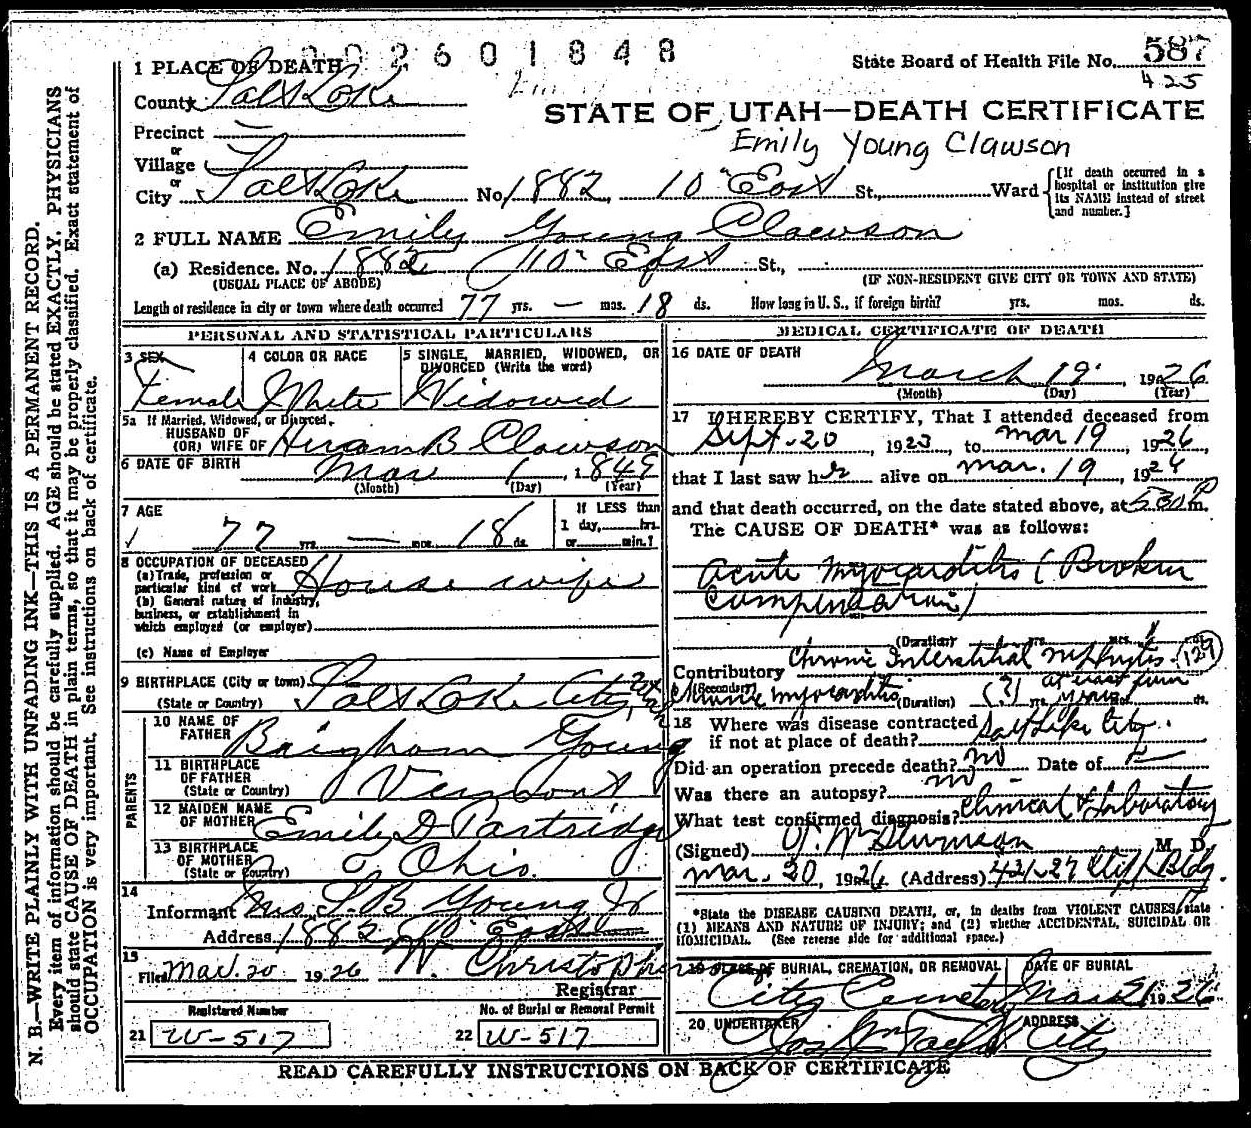 2601848
State Board of Health File No. 587
425
1 PLACE OF DEATH
County Salt Lake
STATE OF UTAH—DEATH CERTIFICATE
Precinct —
or
Village
or
Emily Young Clawson
City Salt Lake No. 1882 10" East St., Ward
[If death occurred in a hospital or institution give its NAME instead of street and number.]
2 FULL NAME Emily Young Clawson
(a) Residence. No. 1882 10" East St.,
(USUAL PLACE OF ABODE) (IF NON-RESIDENT GIVE CITY OR TOWN AND STATE)
Length of residence in city or town where death occurred 77 yrs. — mos. 18 ds. How long in U. S., if foreign birth? yrs. mos. ds.
PERSONAL AND STATISTICAL PARTICULARS
3 SEX
Female
4 COLOR OR RACE
White
5 SINGLE, MARRIED, WIDOWED, OR DIVORCED (Write the word)
Widowed
5a If Married, Widowed, or Divorced,
HUSBAND OF
(OR) WIFE OF Hiram B Clawson
6 DATE OF BIRTH Mar 1, 1849
(Month) (Day) (Year)
7 AGE
77 yrs. — mos. 18 ds.
If LESS than
1 day, hrs.
or min.?
8 OCCUPATION OF DECEASED
(a) Trade, profession or
particular kind of work House wife
(b) General nature of industry,
business, or establishment in
which employed (or employer)
(c) Name of Employer
9 BIRTHPLACE (City or town) Salt Lake City
(State or Country)
PARENTS
10 NAME OF
FATHER Brigham Young
11 BIRTHPLACE
OF FATHER Vermont
(State or Country)
12 MAIDEN NAME
OF MOTHER Emily D Partridge
13 BIRTHPLACE
OF MOTHER Ohio.
(State or Country)
14
Informant Mrs S. B Young Jr
Address 1882 10" East
15
Filed Mar. 20 1926 W. Christopherson
Registrar
Registered Number
21 W-517
No. of Burial or Removal Permit
22 W-517
MEDICAL CERTIFICATE OF DEATH
16 DATE OF DEATH
March 19, 1926
(Month) (Day) (Year)
17 I HEREBY CERTIFY, That I attended deceased from
Sept. 20, 1923 to Mar 19 1926
that I last saw her alive on Mar. 19 1926
and that death occurred, on the date stated above, at 5:30 P m.
The CAUSE OF DEATH* was as follows:
Acute Myocarditis (Broken
Compensation)
(Duration) yrs. mos. ds.
Contributory Chronic Interstitial Nephritis. 129
(Secondary) Chronic Myocarditis (Duration) (?) yrs. at least four years ds.
18 Where was disease contracted
if not at place of death? Salt Lake City.
Did an operation precede death? no Date of —
Was there an autopsy? no -
What test confirmed diagnosis? Clinical & Laboratory
(Signed) M. D.
Mar. 20, 1926 (Address) 421-27 Clift Bldg.
*State the DISEASE CAUSING DEATH, or, in deaths from VIOLENT CAUSES, state
(1) MEANS AND NATURE OF INJURY; and (2) whether ACCIDENTAL, SUICIDAL OR
HOMICIDAL. (See reverse side for additional space.)
19 PLACE OF BURIAL, CREMATION, OR REMOVAL
City Cemetery
DATE OF BURIAL
Mar 21 1926
20 UNDERTAKER
Jos Wm Taylor
ADDRESS
City
READ CAREFULLY INSTRUCTIONS ON BACK OF CERTIFICATE
N. B.—WRITE PLAINLY WITH UNFADING INK—THIS IS A PERMANENT RECORD.
Every item of information should be carefully supplied. AGE should be stated EXACTLY. PHYSICIANS
should state CAUSE OF DEATH in plain terms, so that it may be properly classified. Exact statement of
OCCUPATION is very important. See instructions on back of certificate.